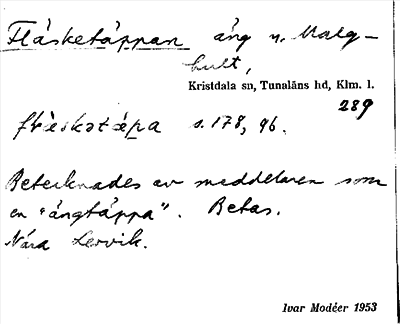 Flåsketäppan äng u. Malg-
hult,
Kristdala sn, Tunaläns hd, Klm. l.
289
s. 178, 96.
Betecknades av meddelaren som
en "ängtäppa". Betas.
Nära Lervik.
Ivar Modéer 1953